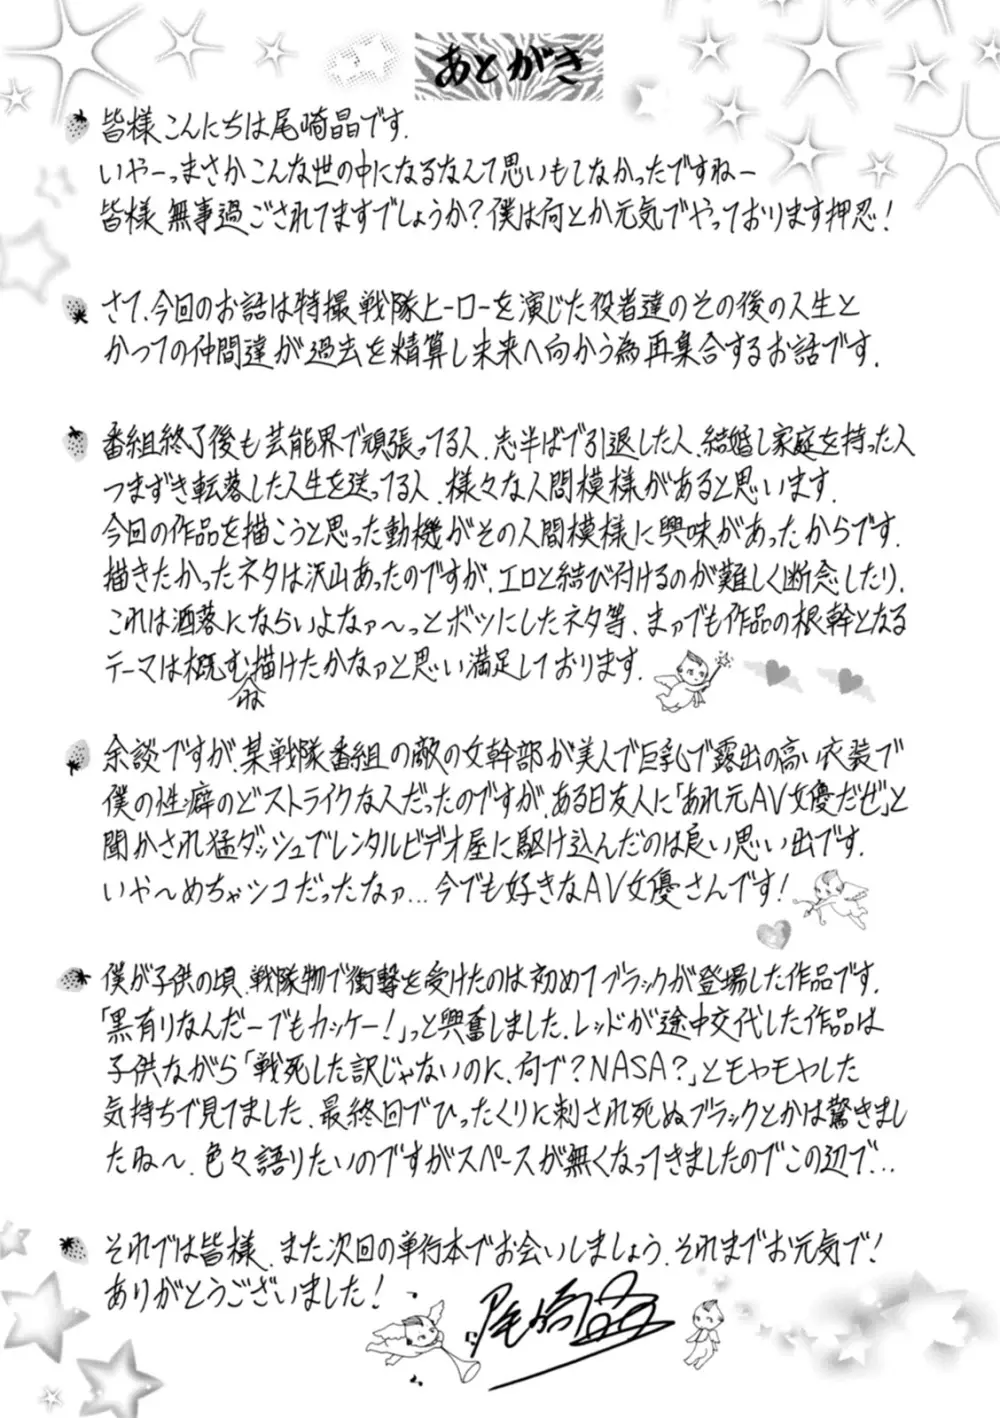 あとがき
皆様こんにちは尾崎晶です.
いやーっまさかこんな世の中になるなんて思いもしなかったですねー
皆様 無事過ごされてますでしょうか?僕は何とか元気でやっております押忍!
さて、今回のお話は特撮 戦隊ヒーローを演じた役者達のその後の人生と
かつての仲間達が過去を精算し未来へ向かう為再集合するお話です.
番組終了後も芸能界で頑張ってる人、志半ばで引退した人、結婚し家庭を持った人
つまずき転落した人生を送ってる人、様々な人間模様があると思います.
今回の作品を描こうと思った動機がその人間模様に興味があったからです.
描きたかったネタは沢山あったのですが、エロと結び付けるのが難しく断念したり、
これは洒落にならいよなァ〜っとボツにしたネタ等、まァでも作品の根幹となる
テーマは概む描けたかなァと思い満足しております.
ね
余談ですが、某戦隊番組の敵の女幹部が美人で巨乳で露出の高い衣装で
僕の性癖のどストライクな人だったのですが、ある日友人に「あれ元AV女優だぜ」と
聞かされ猛ダッシュでレンタルビデオ屋に駆け込んだのは良い思い出です.
いや〜めちゃシコだったなァ...今でも好きなAV女優さんです!
僕が子供の頃、戦隊物で衝撃を受けたのは初めてブラックが登場した作品です.
「黒有りなんだーでもカッケー!」っと興奮しました、レッドが途中交代した作品は
子供ながら「戦死した訳じゃないのに、何で?NASA?」とモヤモヤした
気持ちで見てました、最終回でひったくりに刺され死ぬブラックとかは驚きまし
たね〜、色々語りたいのですがスペースが無くなってきましたのでこの辺で...
それでは皆様、また次回の単行本でお会いしましょう、それまでお元気で!
ありがとうございました!
尾崎晶